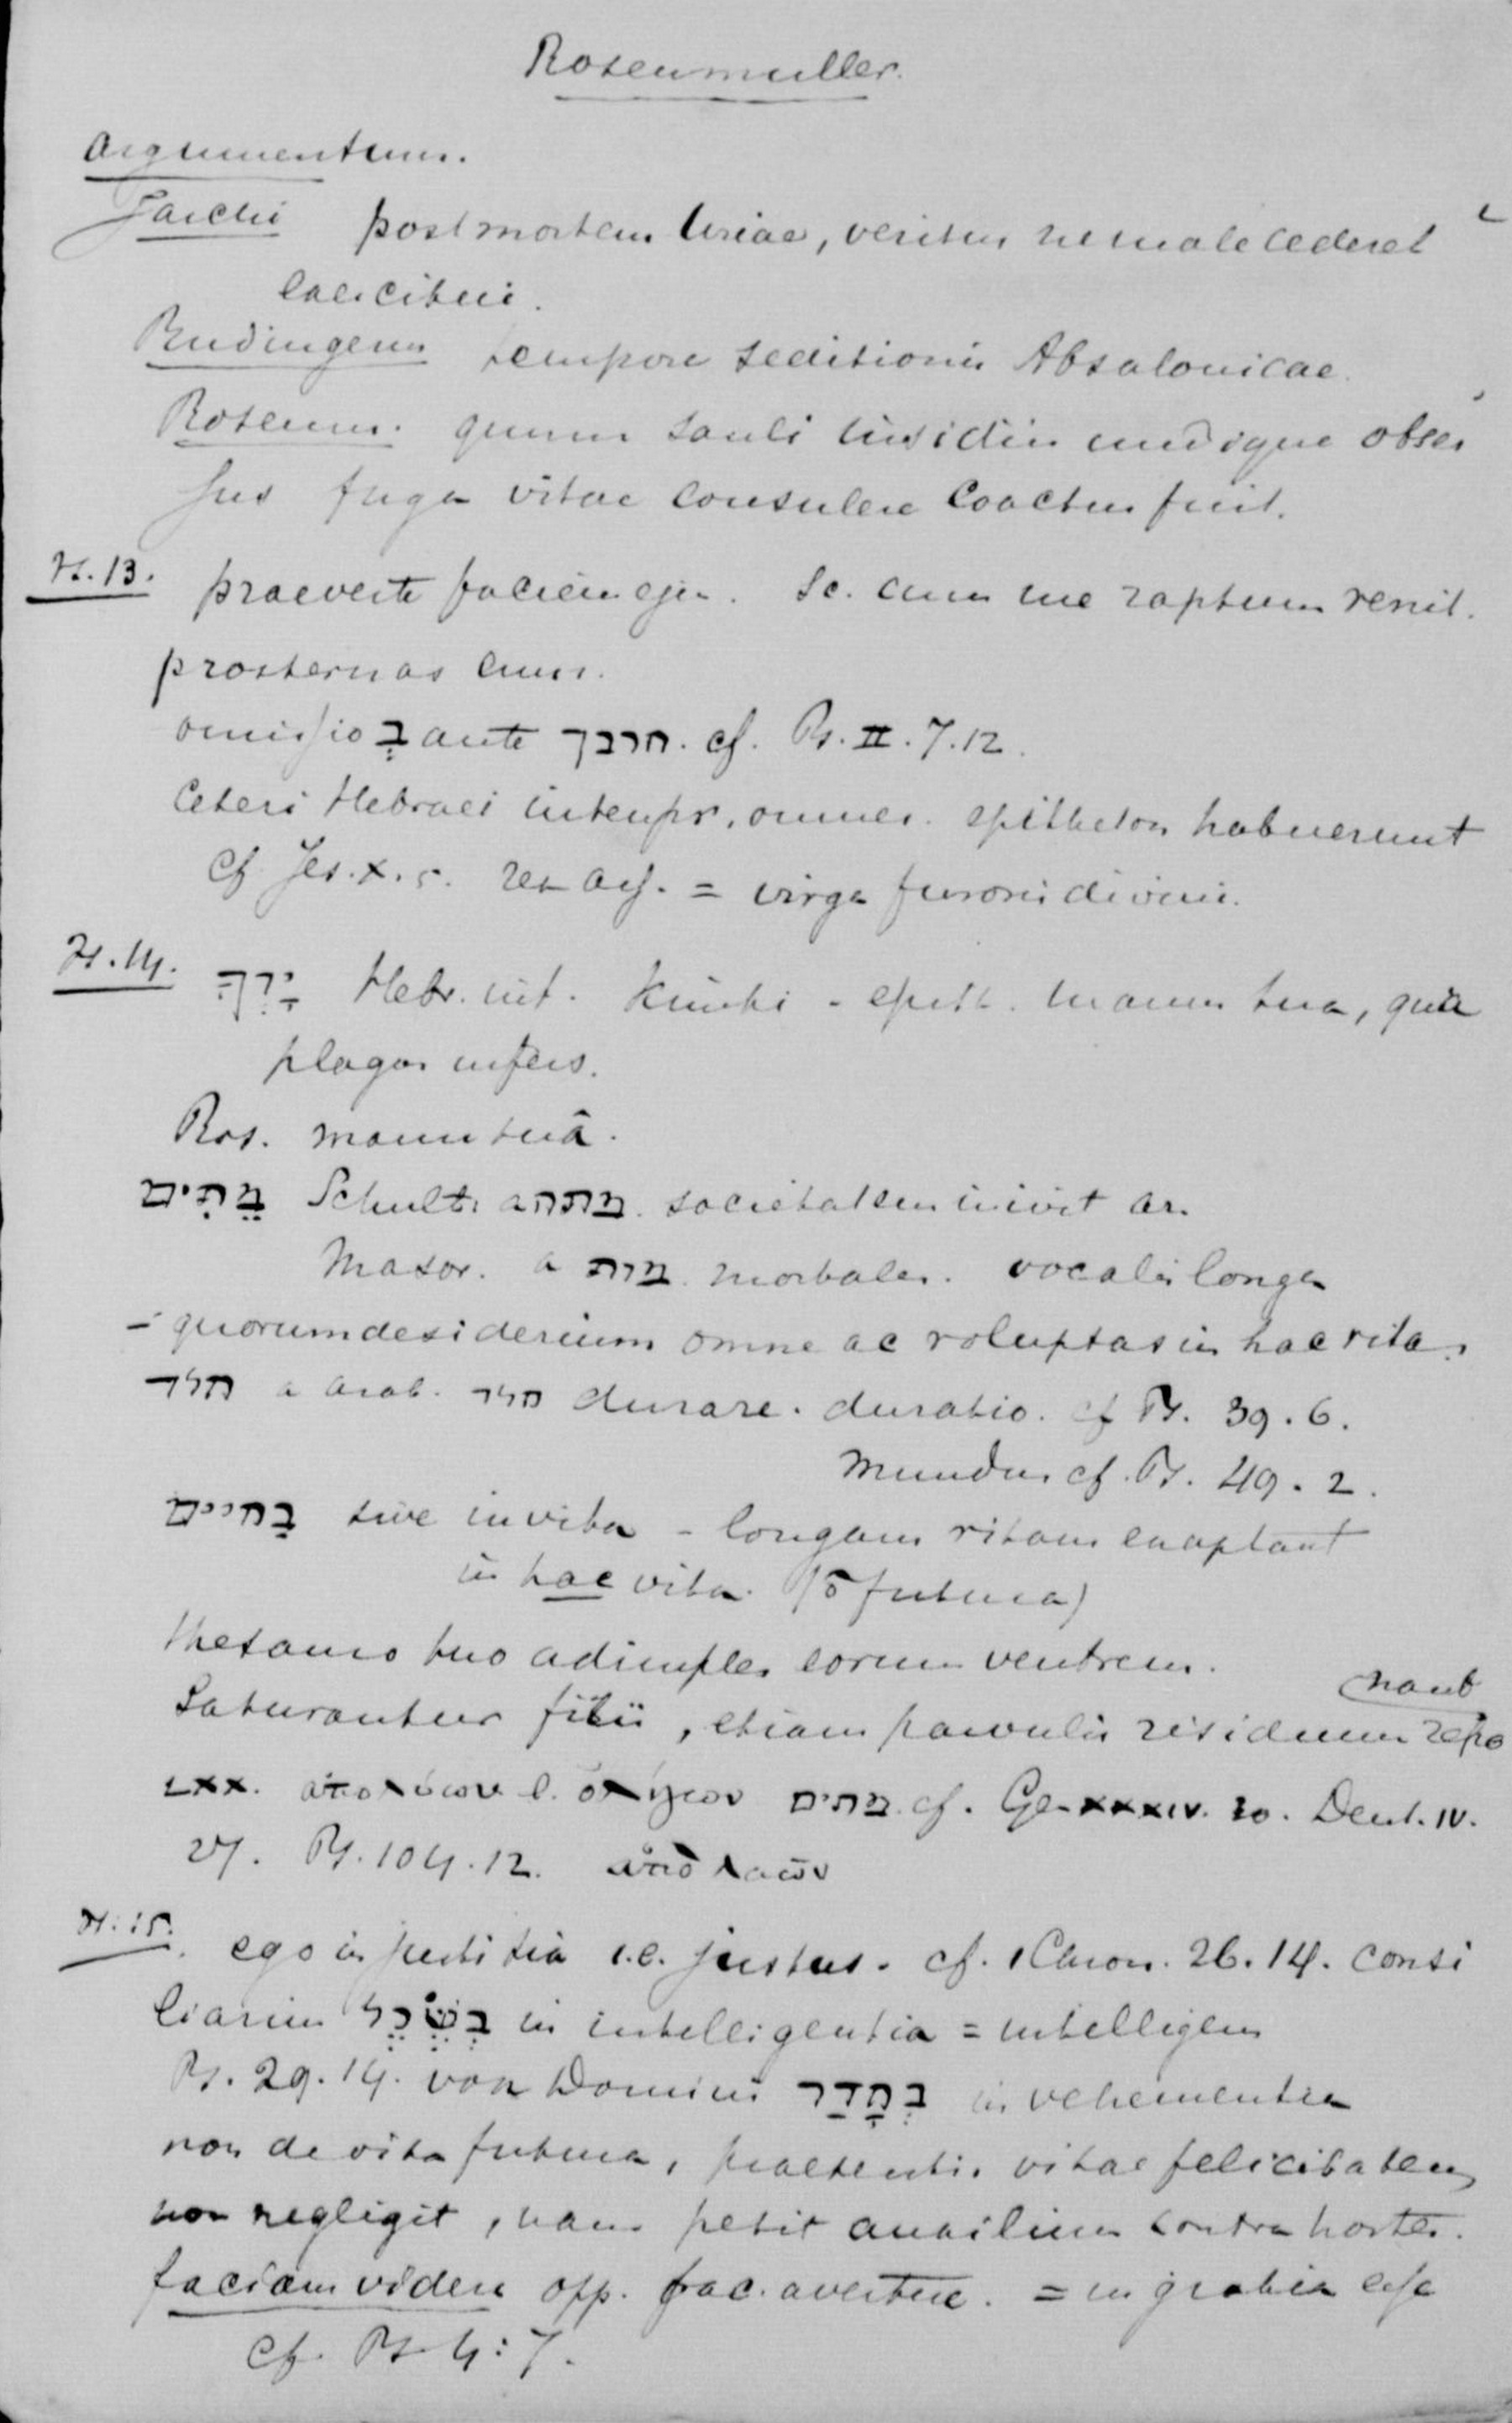 Rosenmuller.
Argumentum.
Jarchi post mortem Uriae, veritus ne male cederet
exercitui.
Rudingerus tempore seditionis Absalonicae.
Rosenm. quum Sauli insidiis undique obses
sus fuga vitae consulere coactus fuit.
Vs. 13. praeverte faciem ejus. Sc. cum me raptum venit.
prosternas eum.
omissio בְ ante חרבך. cf. Ps. II. 7. 12.
Ceteri Hebraei interpr. omnes. epitheton habuerunt
Cf Jes. X. 5. rex Ass. = virga furoris divini.
Vs. 14. יָדְךָ Hebr. int. Kimchi - epith. manus tua, qua
plagas infers.
Ros. manu tuâ.
מֲתִים Schult. a מתה. societatem inivit ar.
Masor. a מות. mortales. vocalis longa
- quorum desiderium omne ac voluptas in hac vita.
חלד a arab. חלד durare. duratio. cf Ps. 39. 6.
mundus cf. Ps. 49. 2.
בַחיים sive in vita - longam vitam exoptant
in hac vita. (ō futura)
thesauro tuo adimples eorum ventrem.
Saturantur filii, etiam parvulis residuum repo
nant
LXX. ἀπολύων l. ὀλίγων מתים. cf. Ge. XXXIV. 30. Deut. IV.
27. Ps. 104. 12. ἀπὸ λαῶν
Vs. 15. ego in justitia i.e. justus. cf. 1 Chron. 26. 14. consi
liarius בְּשֵׂכֶל in intelligentia = intelligens
Ps. 29. 14. vox Domini בְּהָדַר in vehementia
non de vita futura, praesentis vitae felicitatem
non negligit, nam petit auxilium contra hostes.
faciem videre opp. fac. avertere. = in gratia esse
Cf. Ps. 4: 7.